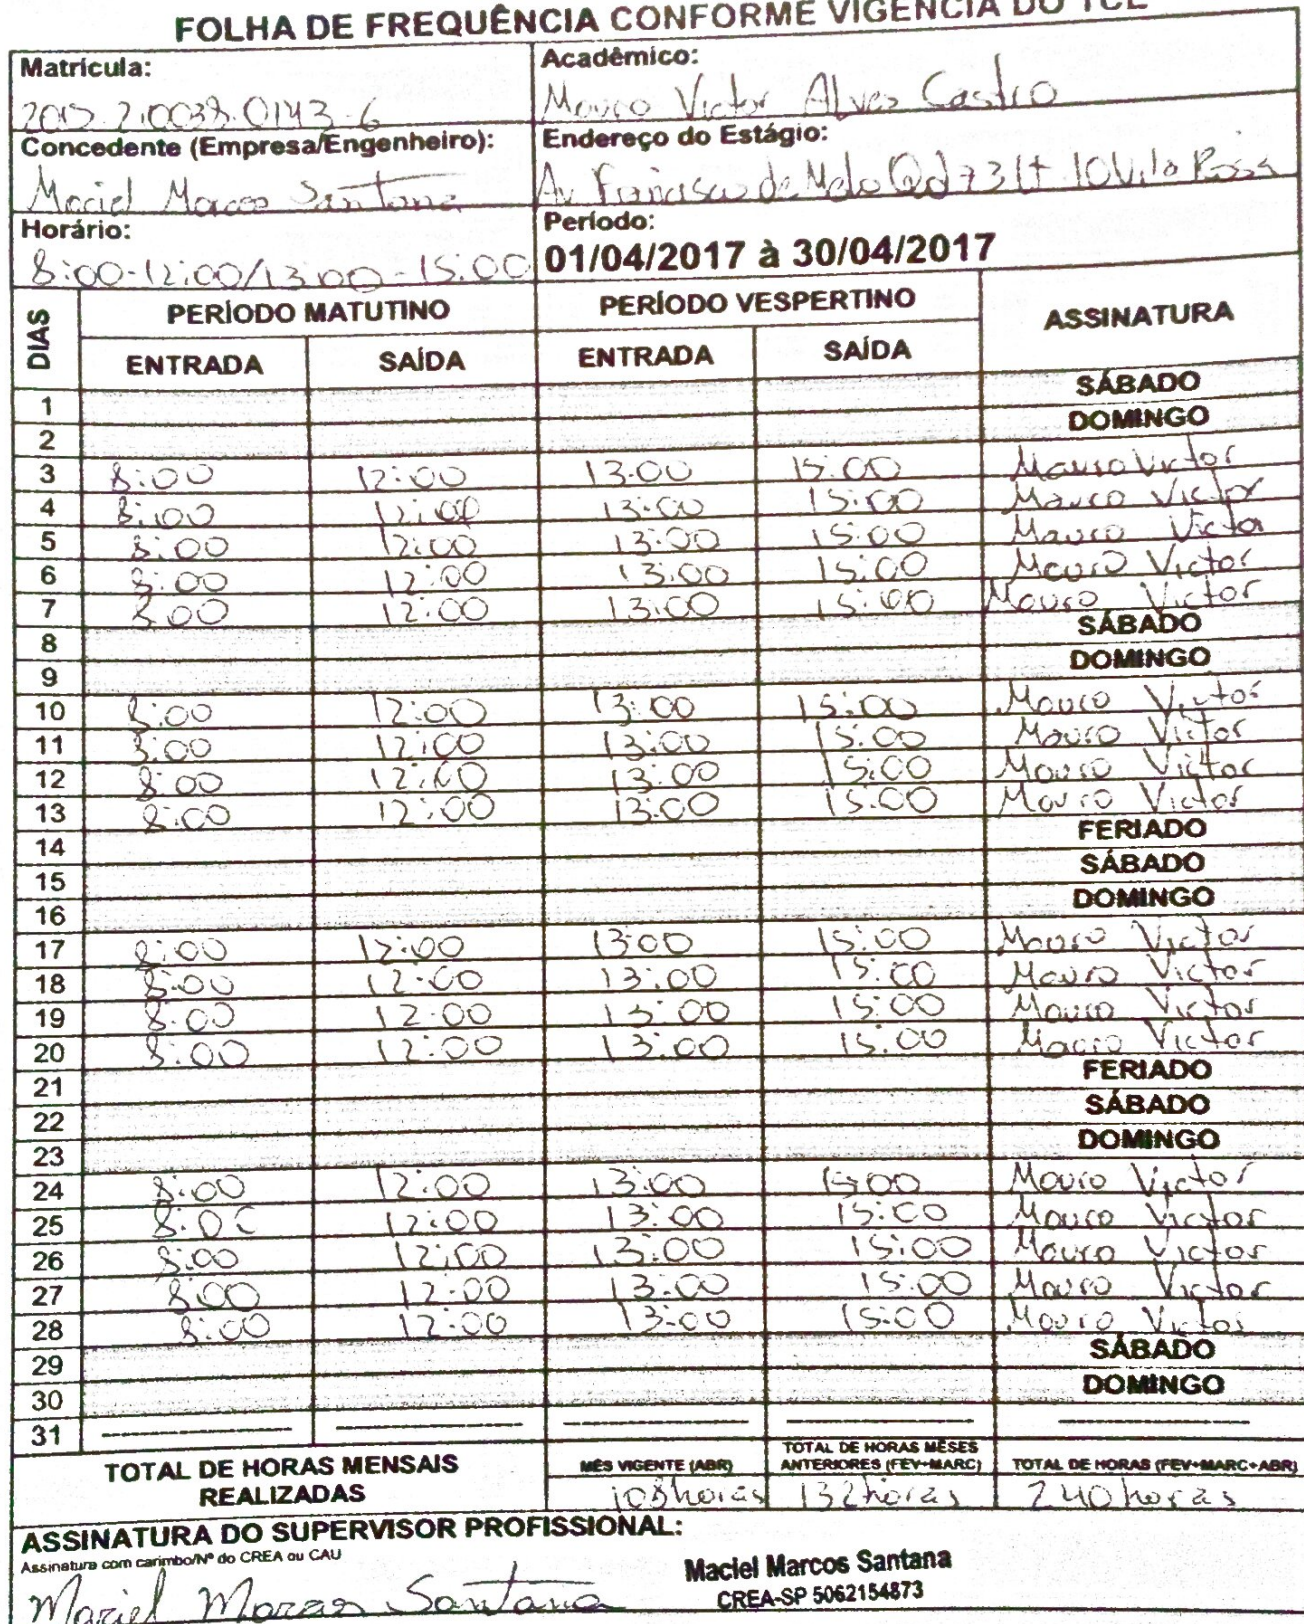 FOLHA DE FREQUÊNCIA CONFORME VIGÊNCIA DO TCE
Matrícula: Acadêmico:
2015.2.0038.0143-6 Mauro Victor Alves Castro
Concedente (Empresa/Engenheiro): Endereço do Estágio:
Maciel Marcos Santana Av Francisco de Melo Qd 73 Lt 10 Vila Rosa
Horário: Período:
8:00-12:00/13:00-15:00 01/04/2017 à 30/04/2017
DIAS PERÍODO MATUTINO PERÍODO VESPERTINO ASSINATURA
ENTRADA SAÍDA ENTRADA SAÍDA
1 SÁBADO
2 DOMINGO
3 8:00 12:00 13:00 15:00 Mauro Victor
4 8:00 12:00 13:00 15:00 Mauro Victor
5 8:00 12:00 13:00 15:00 Mauro Victor
6 8:00 12:00 13:00 15:00 Mauro Victor
7 8:00 12:00 13:00 15:00 Mauro Victor
8 SÁBADO
9 DOMINGO
10 8:00 12:00 13:00 15:00 Mauro Victor
11 8:00 12:00 13:00 15:00 Mauro Victor
12 8:00 12:00 13:00 15:00 Mauro Victor
13 8:00 12:00 13:00 15:00 Mauro Victor
14 FERIADO
15 SÁBADO
16 DOMINGO
17 8:00 12:00 13:00 15:00 Mauro Victor
18 8:00 12:00 13:00 15:00 Mauro Victor
19 8:00 12:00 13:00 15:00 Mauro Victor
20 8:00 12:00 13:00 15:00 Mauro Victor
21 FERIADO
22 SÁBADO
23 DOMINGO
24 8:00 12:00 13:00 15:00 Mauro Victor
25 8:00 12:00 13:00 15:00 Mauro Victor
26 8:00 12:00 13:00 15:00 Mauro Victor
27 8:00 12:00 13:00 15:00 Mauro Victor
28 8:00 12:00 13:00 15:00 Mauro Victor
29 SÁBADO
30 DOMINGO
31
TOTAL DE HORAS MENSAIS REALIZADAS MÊS VIGENTE (ABR) TOTAL DE HORAS MESES ANTERIORES (FEV+MARC) TOTAL DE HORAS (FEV+MARC+ABR)
108 horas 132 horas 240 horas
ASSINATURA DO SUPERVISOR PROFISSIONAL:
Assinatura com carimbo/Nº do CREA ou CAU
Maciel Marcos Santana
Maciel Marcos Santana
CREA-SP 5062154873